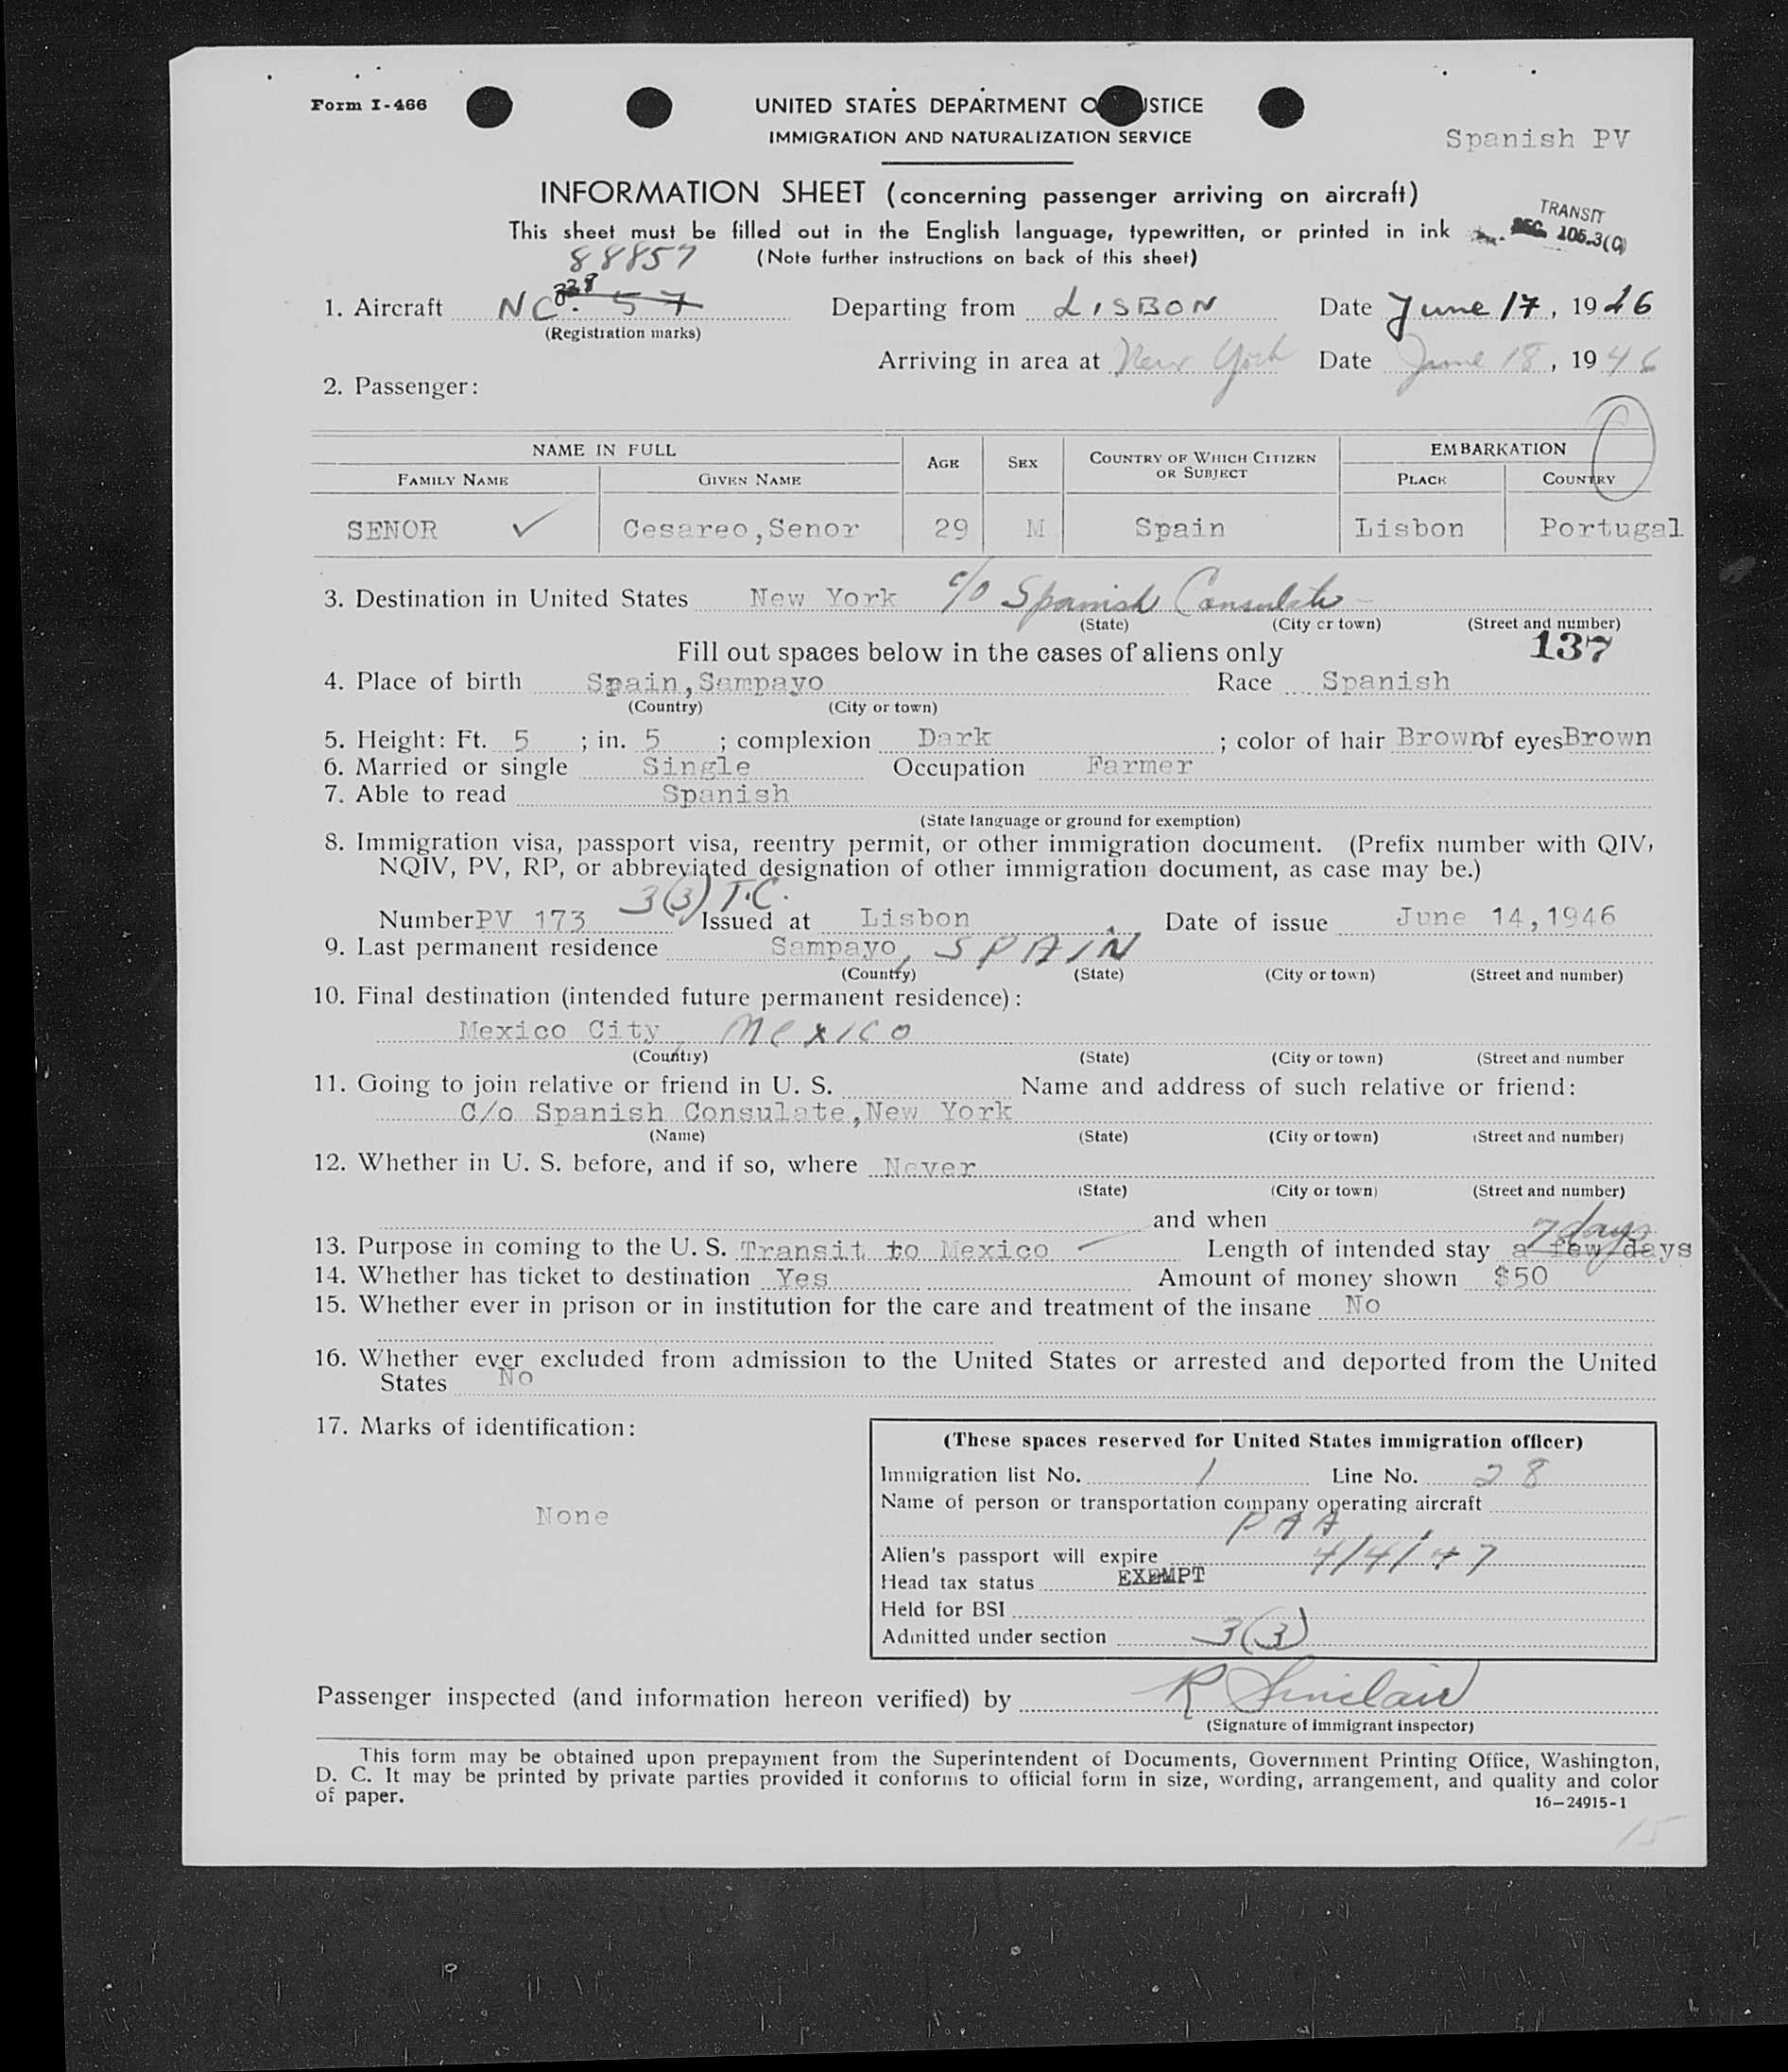 Form I-466
UNITED STATES DEPARTMENT O JSTICE
IMMIGRATION AND NATURALIZATION SERVICE
Spanish PV
INFORMATION SHEET (concerning passenger arriving on aircraft)
TRANSIT
SEC. 105.3(C)
This sheet must be filled out in the English language, typewritten, or printed in ink
88857
(Note further instructions on back of this sheet)
1. Aircraft NC. 57 Departing from LISBON Date June 17, 1946
(Registration marks)
Arriving in area at New York Date June 18, 1946
2. Passenger:
NAME IN FULL AGE SEX COUNTRY OF WHICH CITIZEN OR SUBJECT EMBARKATION
FAMILY NAME GIVEN NAME PLACE COUNTRY
SENOR ✓ Cesareo,Senor 29 M Spain Lisbon Portugal
3. Destination in United States New York c/o Spanish Consulate
(State) (City or town) (Street and number)
Fill out spaces below in the cases of aliens only 137
4. Place of birth Spain,Sampayo Race Spanish
(Country) (City or town)
5. Height: Ft. 5 ; in. 5 ; complexion Dark ; color of hair Brown of eyes Brown
6. Married or single Single Occupation Farmer
7. Able to read Spanish
(State language or ground for exemption)
8. Immigration visa, passport visa, reentry permit, or other immigration document. (Prefix number with QIV,
NQIV, PV, RP, or abbreviated designation of other immigration document, as case may be.)
3(3) T.C.
Number PV 173 Issued at Lisbon Date of issue June 14,1946
9. Last permanent residence Sampayo, SPAIN
(Country) (State) (City or town) (Street and number)
10. Final destination (intended future permanent residence):
Mexico City, Mexico
(Country) (State) (City or town) (Street and number
11. Going to join relative or friend in U. S. Name and address of such relative or friend:
C/o Spanish Consulate,New York
(Name) (State) (City or town) (Street and number)
12. Whether in U. S. before, and if so, where Never
(State) (City or town) (Street and number)
and when
7 days
13. Purpose in coming to the U. S. Transit to Mexico Length of intended stay a few days
14. Whether has ticket to destination Yes Amount of money shown $50
15. Whether ever in prison or in institution for the care and treatment of the insane No
16. Whether ever excluded from admission to the United States or arrested and deported from the United
States No
17. Marks of identification:
None
(These spaces reserved for United States immigration officer)
Immigration list No. 1 Line No. 28
Name of person or transportation company operating aircraft
PAA
Alien's passport will expire 4/4/47
Head tax status EXEMPT
Held for BSI
Admitted under section 3(3)
Passenger inspected (and information hereon verified) by R Sinclair
(Signature of immigrant inspector)
This form may be obtained upon prepayment from the Superintendent of Documents, Government Printing Office, Washington,
D. C. It may be printed by private parties provided it conforms to official form in size, wording, arrangement, and quality and color
of paper.
16—24915-1
15